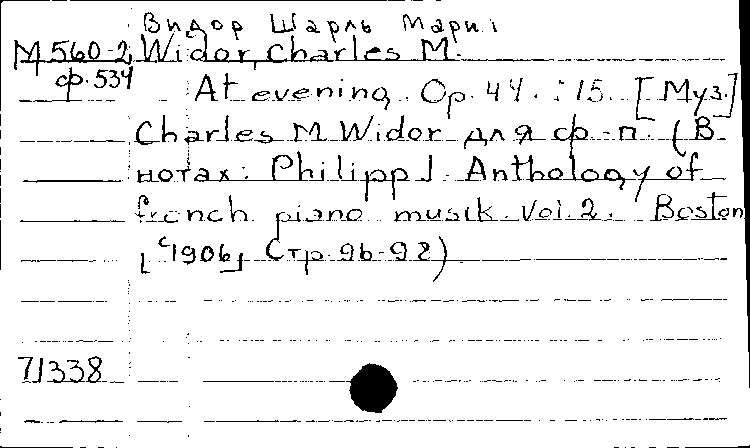 Видор Шарль Мари
М 560-2 Widor, Charles M.
ф. 534
At evening. Op. 44. : 15. [Муз.]
Charles M Widor для ф.-п. (В
нотах: Philipp J. Anthology of
french piano musik. Vol. 2. Boston
[c1906] Стр. 96-98)
71338